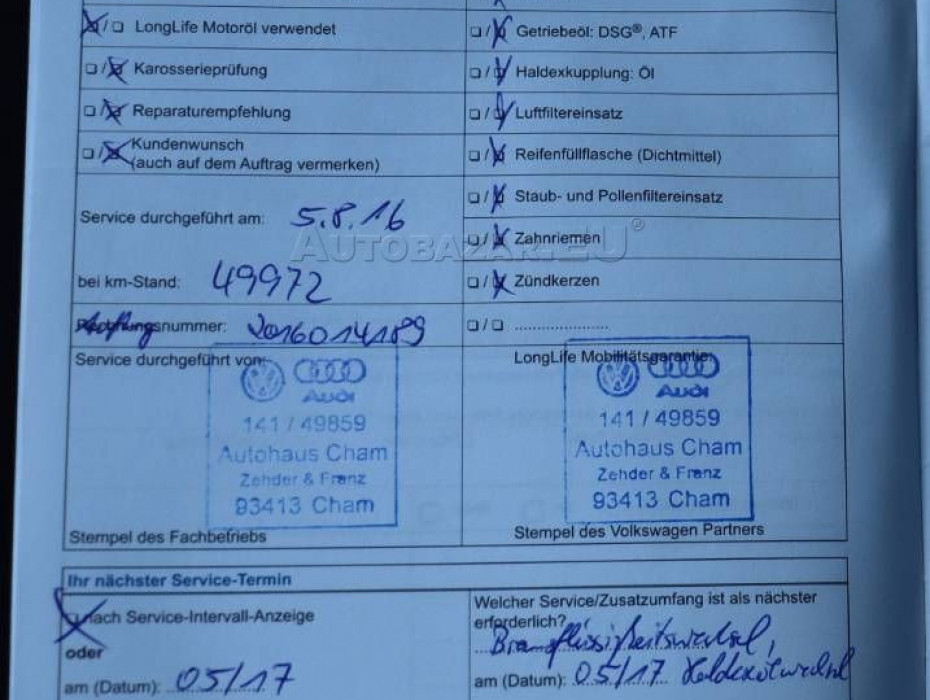 LongLife Motoröl verwendet
Getriebeöl: DSG®, ATF
Karosserieprüfung
Haldexkupplung: Öl
Reparaturempfehlung
Luftfiltereinsatz
Kundenwunsch
(auch auf dem Auftrag vermerken)
Reifenfüllflasche (Dichtmittel)
Staub- und Pollenfiltereinsatz
Service durchgeführt am: 5.8.16
AUTOBAZAR.EU®
Zahnriemen
bei km-Stand: 49972
Zündkerzen
nummer: 2016014189
Service durchgeführt von:
Audi
141 / 49859
Autohaus Cham
Zehder & Franz
93413 Cham
Stempel des Fachbetriebs
LongLife Mobilitätsgarantie:
Audi
141 / 49859
Autohaus Cham
Zehder & Franz
93413 Cham
Stempel des Volkswagen Partners
Ihr nächster Service-Termin
nach Service-Intervall-Anzeige
oder
am (Datum): 05/17
Welcher Service/Zusatzumfang ist als nächster
erforderlich?
Bremsflüssigkeitswechsel,
am (Datum): 05/17 Haldexölwechsel